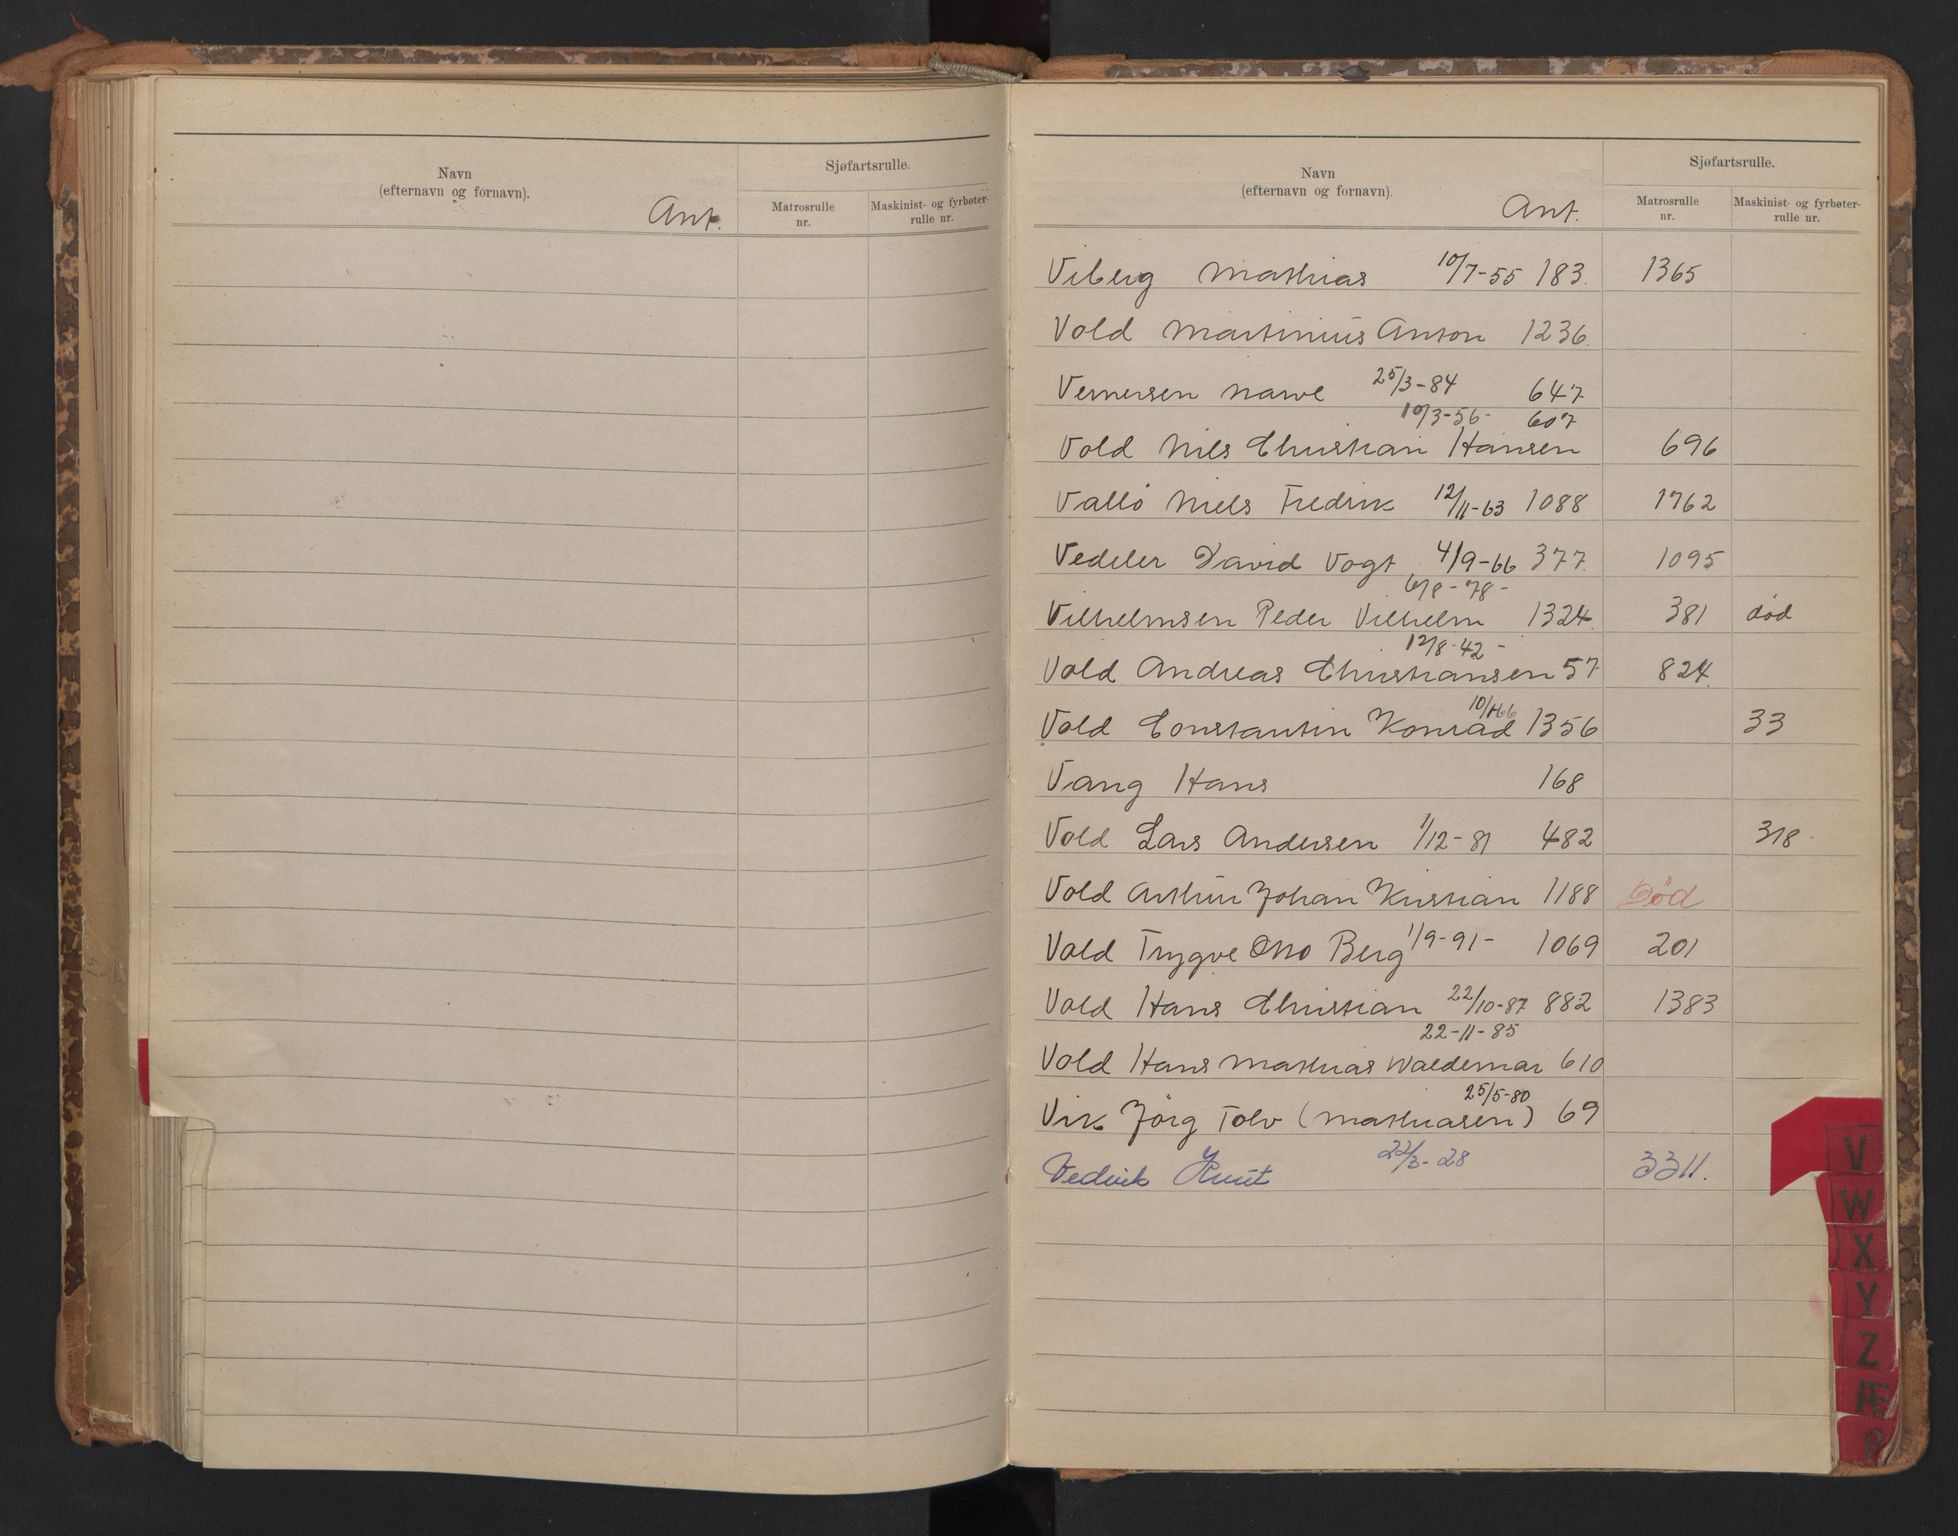 Navn
(efternavn og fornavn).
Ant.
Sjøfartsrulle.
Matrosrulle
nr.
Maskinist- og fyrbøter-
rulle nr.
Navn
(efternavn og fornavn).
Ant.
Sjøfartsrulle.
Matrosrulle
nr.
Maskinist- og fyrbøter-
rulle nr.
Viberg Mathias 10/7-55 183. 1365
Vold Martinius Anton 1236.
Vernersen Narve 25/3-84 647
10/3-56- 607
Vold Nils Christian Hansen 696
Vallö Niels Fredrik 12/11-63 1088 1762
Vedeler David Vogt 4/9-66 377. 1095
6/8-78-
Vilhelmsen Peder Vilhelm 1324. 381 død
12/8-42-
Vold Andreas Christiansen 57 824.
Vold Constantin Konrad 1356 33
Vang Hans 168
Vold Lars Andersen 1/12-81 482 318.
Vold Arthur Johan Kristian 1188 Död
Vold Trygve Otto Berg 1/9-91- 1069 201
Vold Hans Christian 22/10-87 882 1383
22-11-85
Vold Hans Mathias Waldemar 610
25/5-80
Vik Jörg Tolv (Mathiasen) 69
Vedvik Knut 22/3-28 3311.
V
W
X
Y
Z
Æ